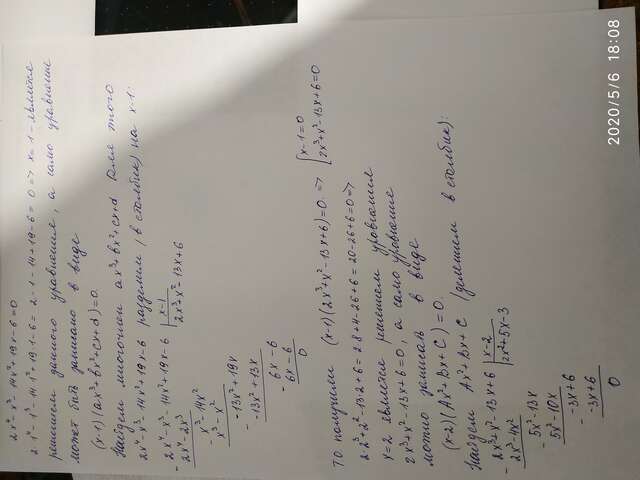 2x⁴-x³-14x²+19x-6=0
2·1⁴-1³-14·1²+19·1-6= 2-1-14+19-6=0 => x=1-является
решением данного уравнения, а само уравнение
может быть записано в виде
(x-1)(ax³+bx²+cx+d)=0.
Найдём многочлен ax³+bx²+cx+d Для этого
2x⁴-x³-14x²+19x-6 разделим (в столбик) на x-1:
- 2x⁴-x³-14x²+19x-6 | x-1
2x⁴-2x³ 2x³+x²-13x+6
- x³-14x²
x³-x²
- -13x²+19x
-13x²+13x
- 6x-6
6x-6
0
Т.О. получили (x-1)(2x³+x²-13x+6)=0. => [x-1=0
2x³+x²-13x+6=0
2·2³+2²-13·2+6=2·8+4-26+6=20-26+6=0=>
x=2 является решением уравнения
2x³+x²-13x+6=0, а само уравнение
можно записать в виде
(x-2)(Ax²+Bx+C)=0.
Найдём Ax²+Bx+C (делением в столбик):
- 2x³+x²-13x+6 | x-2
2x³-4x² 2x²+5x-3
- 5x²-13x
5x²-10x
- -3x+6
-3x+6
0
2020/5/6 18:08